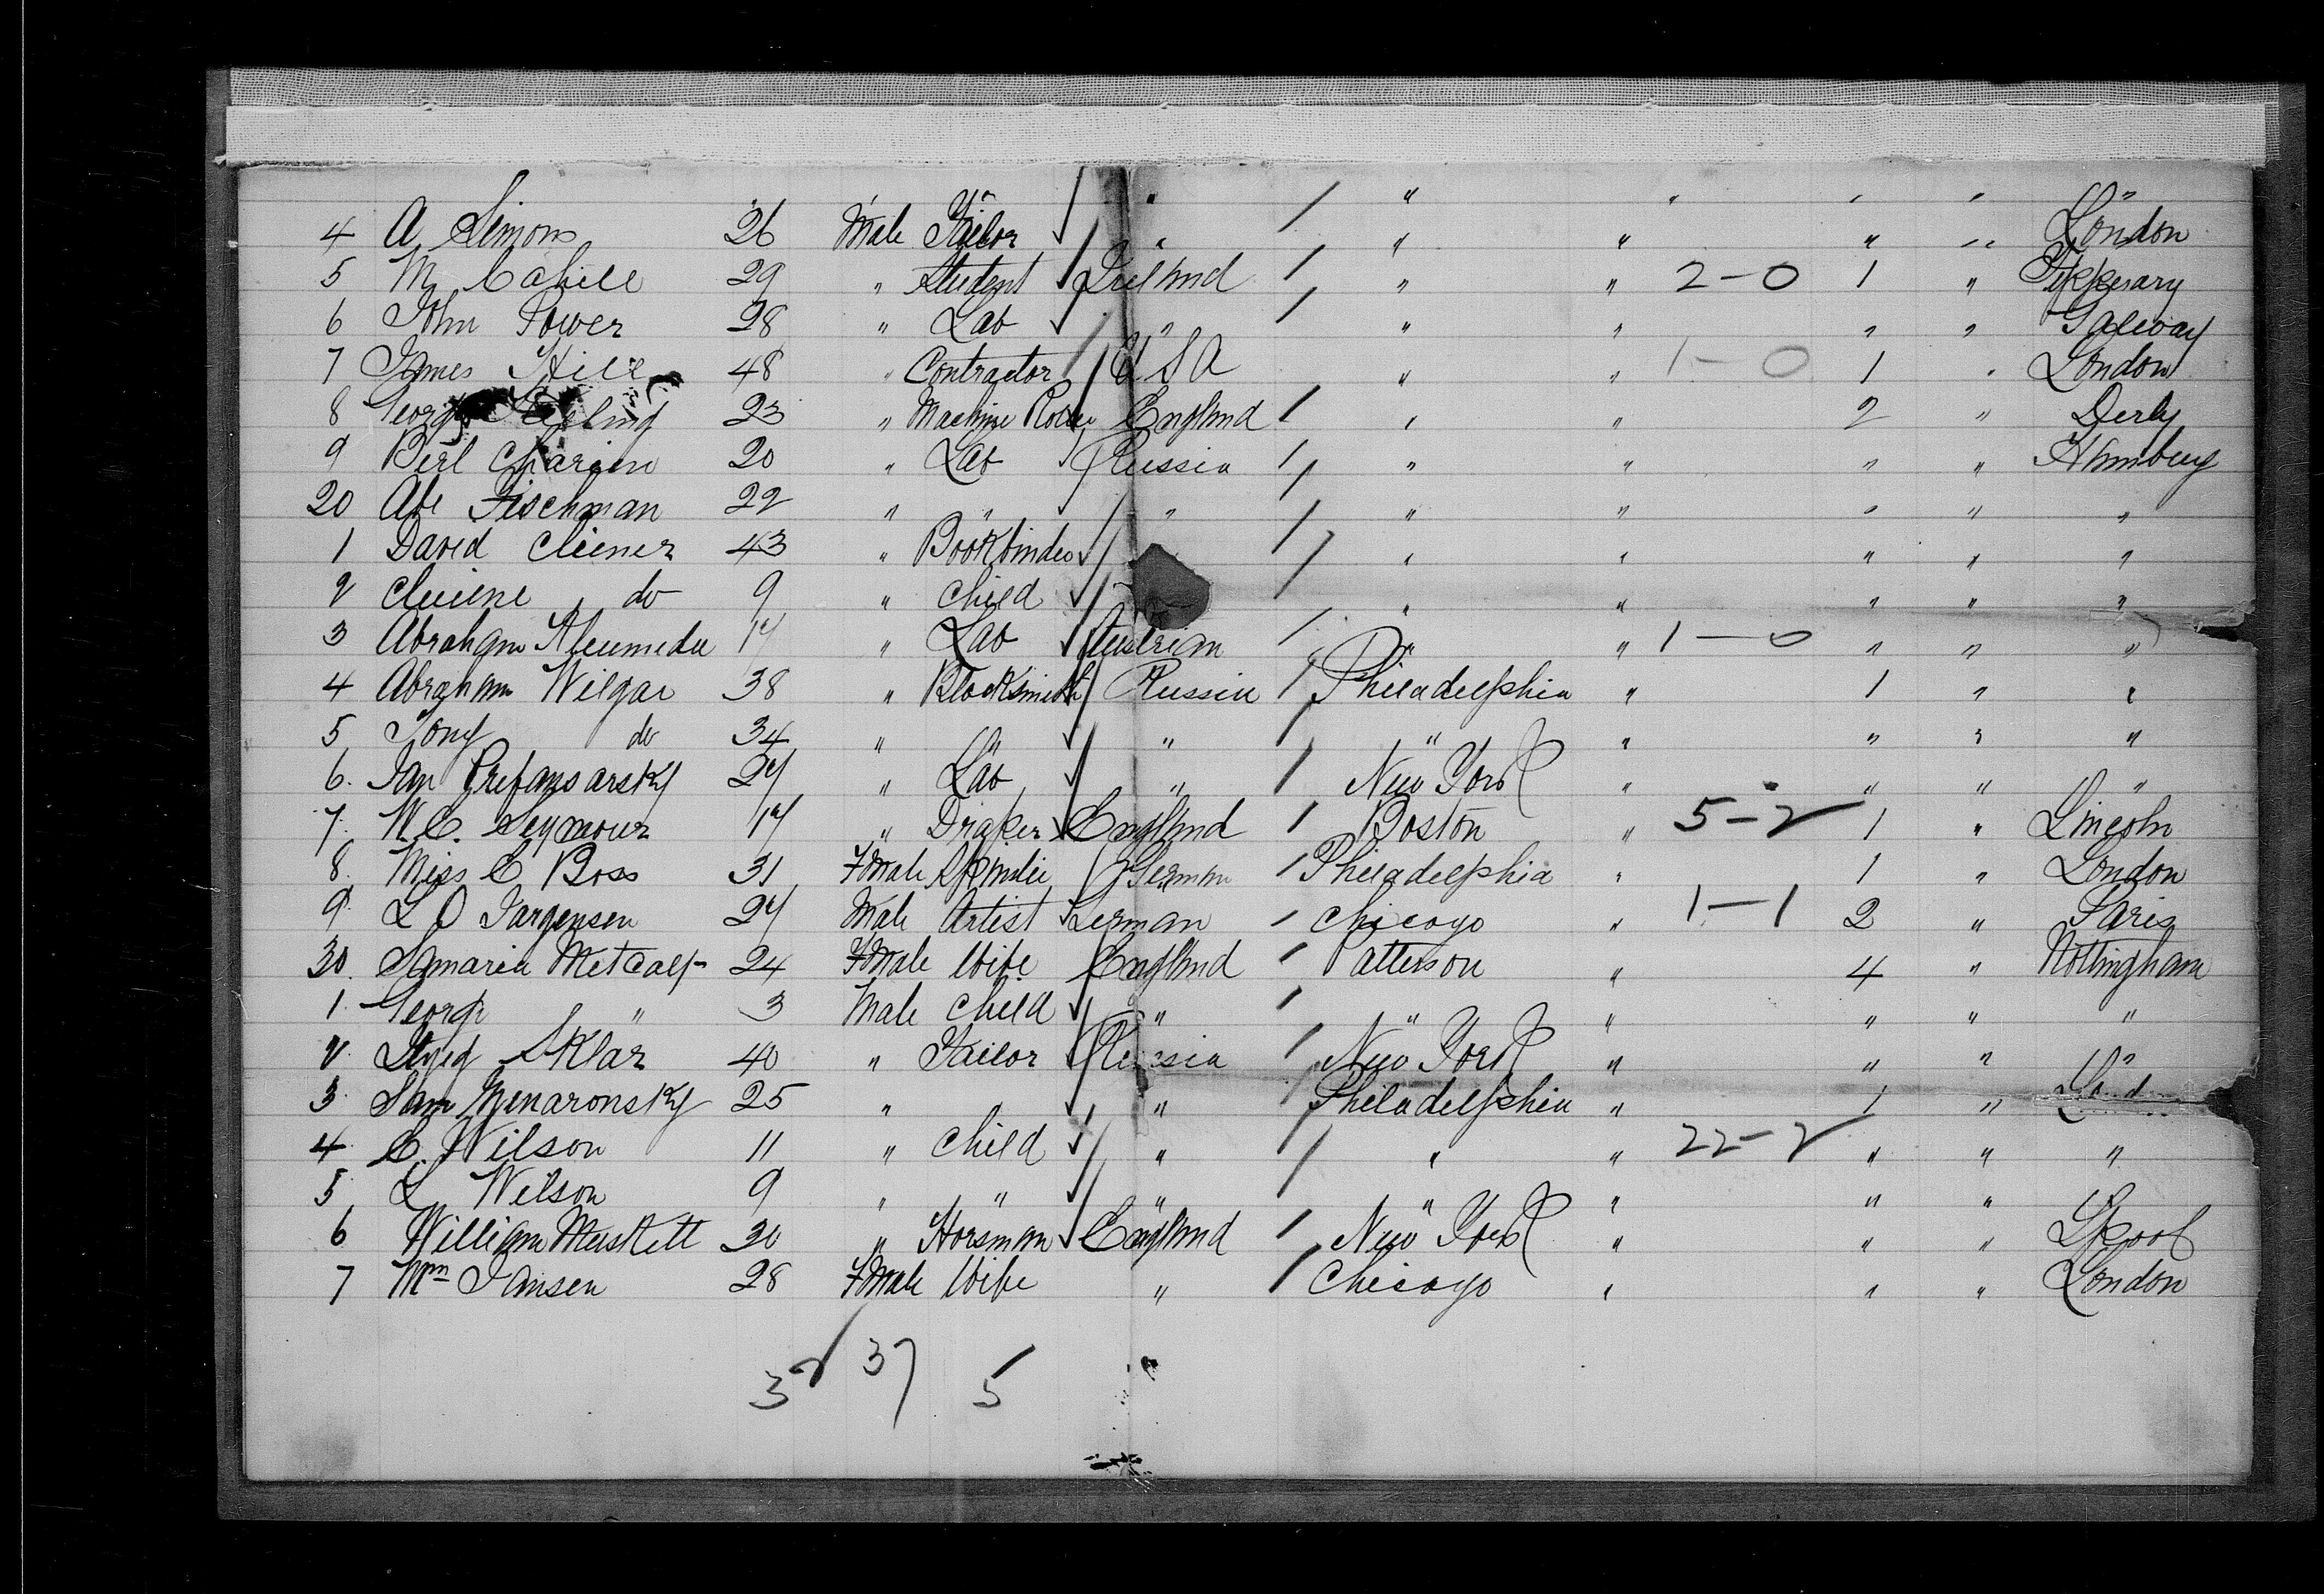 " " " " " " "
4 A Simons 26 Male Tailor " " " " " London
5 M Cahill 29 " Student Ireland " " 2-0 1 " Tipperary
6 John Power 28 " Lab " " " " " Galway
7 James Hill 48 " Contractor U S A " " 1-0 1 " London
8 George 23 " Machine England " " 2 " Derby
9 Berl 20 " Lab Russia " " " " Hamburg
20 Abe Fischman 22 " " " " " " " "
1 David Cliener 43 " Bookbinder " " " " "
2 do 9 " Child " " " " "
3 Abraham 17 " Lab Austrian " " 1-0 " " "
4 Abraham Wilgar 38 " Blacksmith Russia Philadelphia " 1 " "
5 Tony do 34 " " " " " " " "
6. Jan 27 " Lab " New York " " " "
7. W C. Seymour 17 " Draper England Boston " 5-2 1 " Lincoln
8. Miss C Boss 31 Female German Philadelphia " 1 " London
9. L O Jargensen 27 Male Artist German Chicago " 1-1 2 " Paris
30. Samaria Metcalf 24 Female Wife England Patterson " 4 " Nottingham
1. George " 3 Male Child " " " " " "
2. Sklar 40 " Tailor Russia New York " " " "
3. Sam 25 " " " Philadelphia " 1 "
4. C. Wilson 11 " Child " " " 22-2 " " "
5 L Wilson 9 " " " " " " "
6 William Muskett 30 " Horsman England New York " " " Lpool
7 Jansen 28 Female Wife " Chicago " " " London
32 37 5